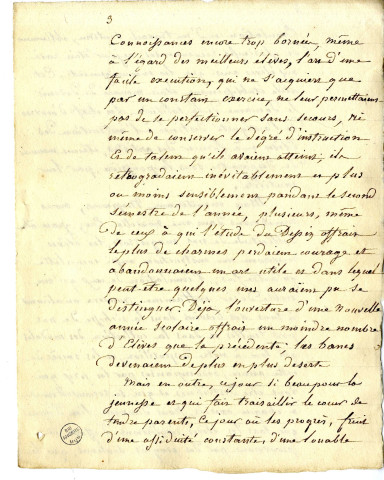 3
Connoissances encore trop bornées, même
à l'égard des meilleurs élèves, l'art d'une
facile execution, qui ne s'acquiert que
par un constant exercice, ne leur permettaient
pas de se perfectionner sans secours, ni
même de conserver le dégré d'instruction
Et de talent qu'ils avaient atteint, ils
rétrogradaient inévitablement et plus
ou moins sensiblement pendant le second
sémestre de l'année, plusieurs, même
de ceux à qui l'étude du Dessin offrait
le plus de charmes perdaient courage et
abandonnaient un art utile et dans lequel
peut-être quelques uns auraient pu se
distinguer. Déja, l'ouverture d'une Nouvelle
année Scolaire offrait un moindre nombre
d'Elèves que la précédente; les bancs
devenaient de plus en plus deserts
Mais en outre, ce jour si beau pour la
jeunesse et qui fait tressaillir le cœur de
tendres parents, ce jour où les progrès, fruit
d'une assiduité constante, d'une louable